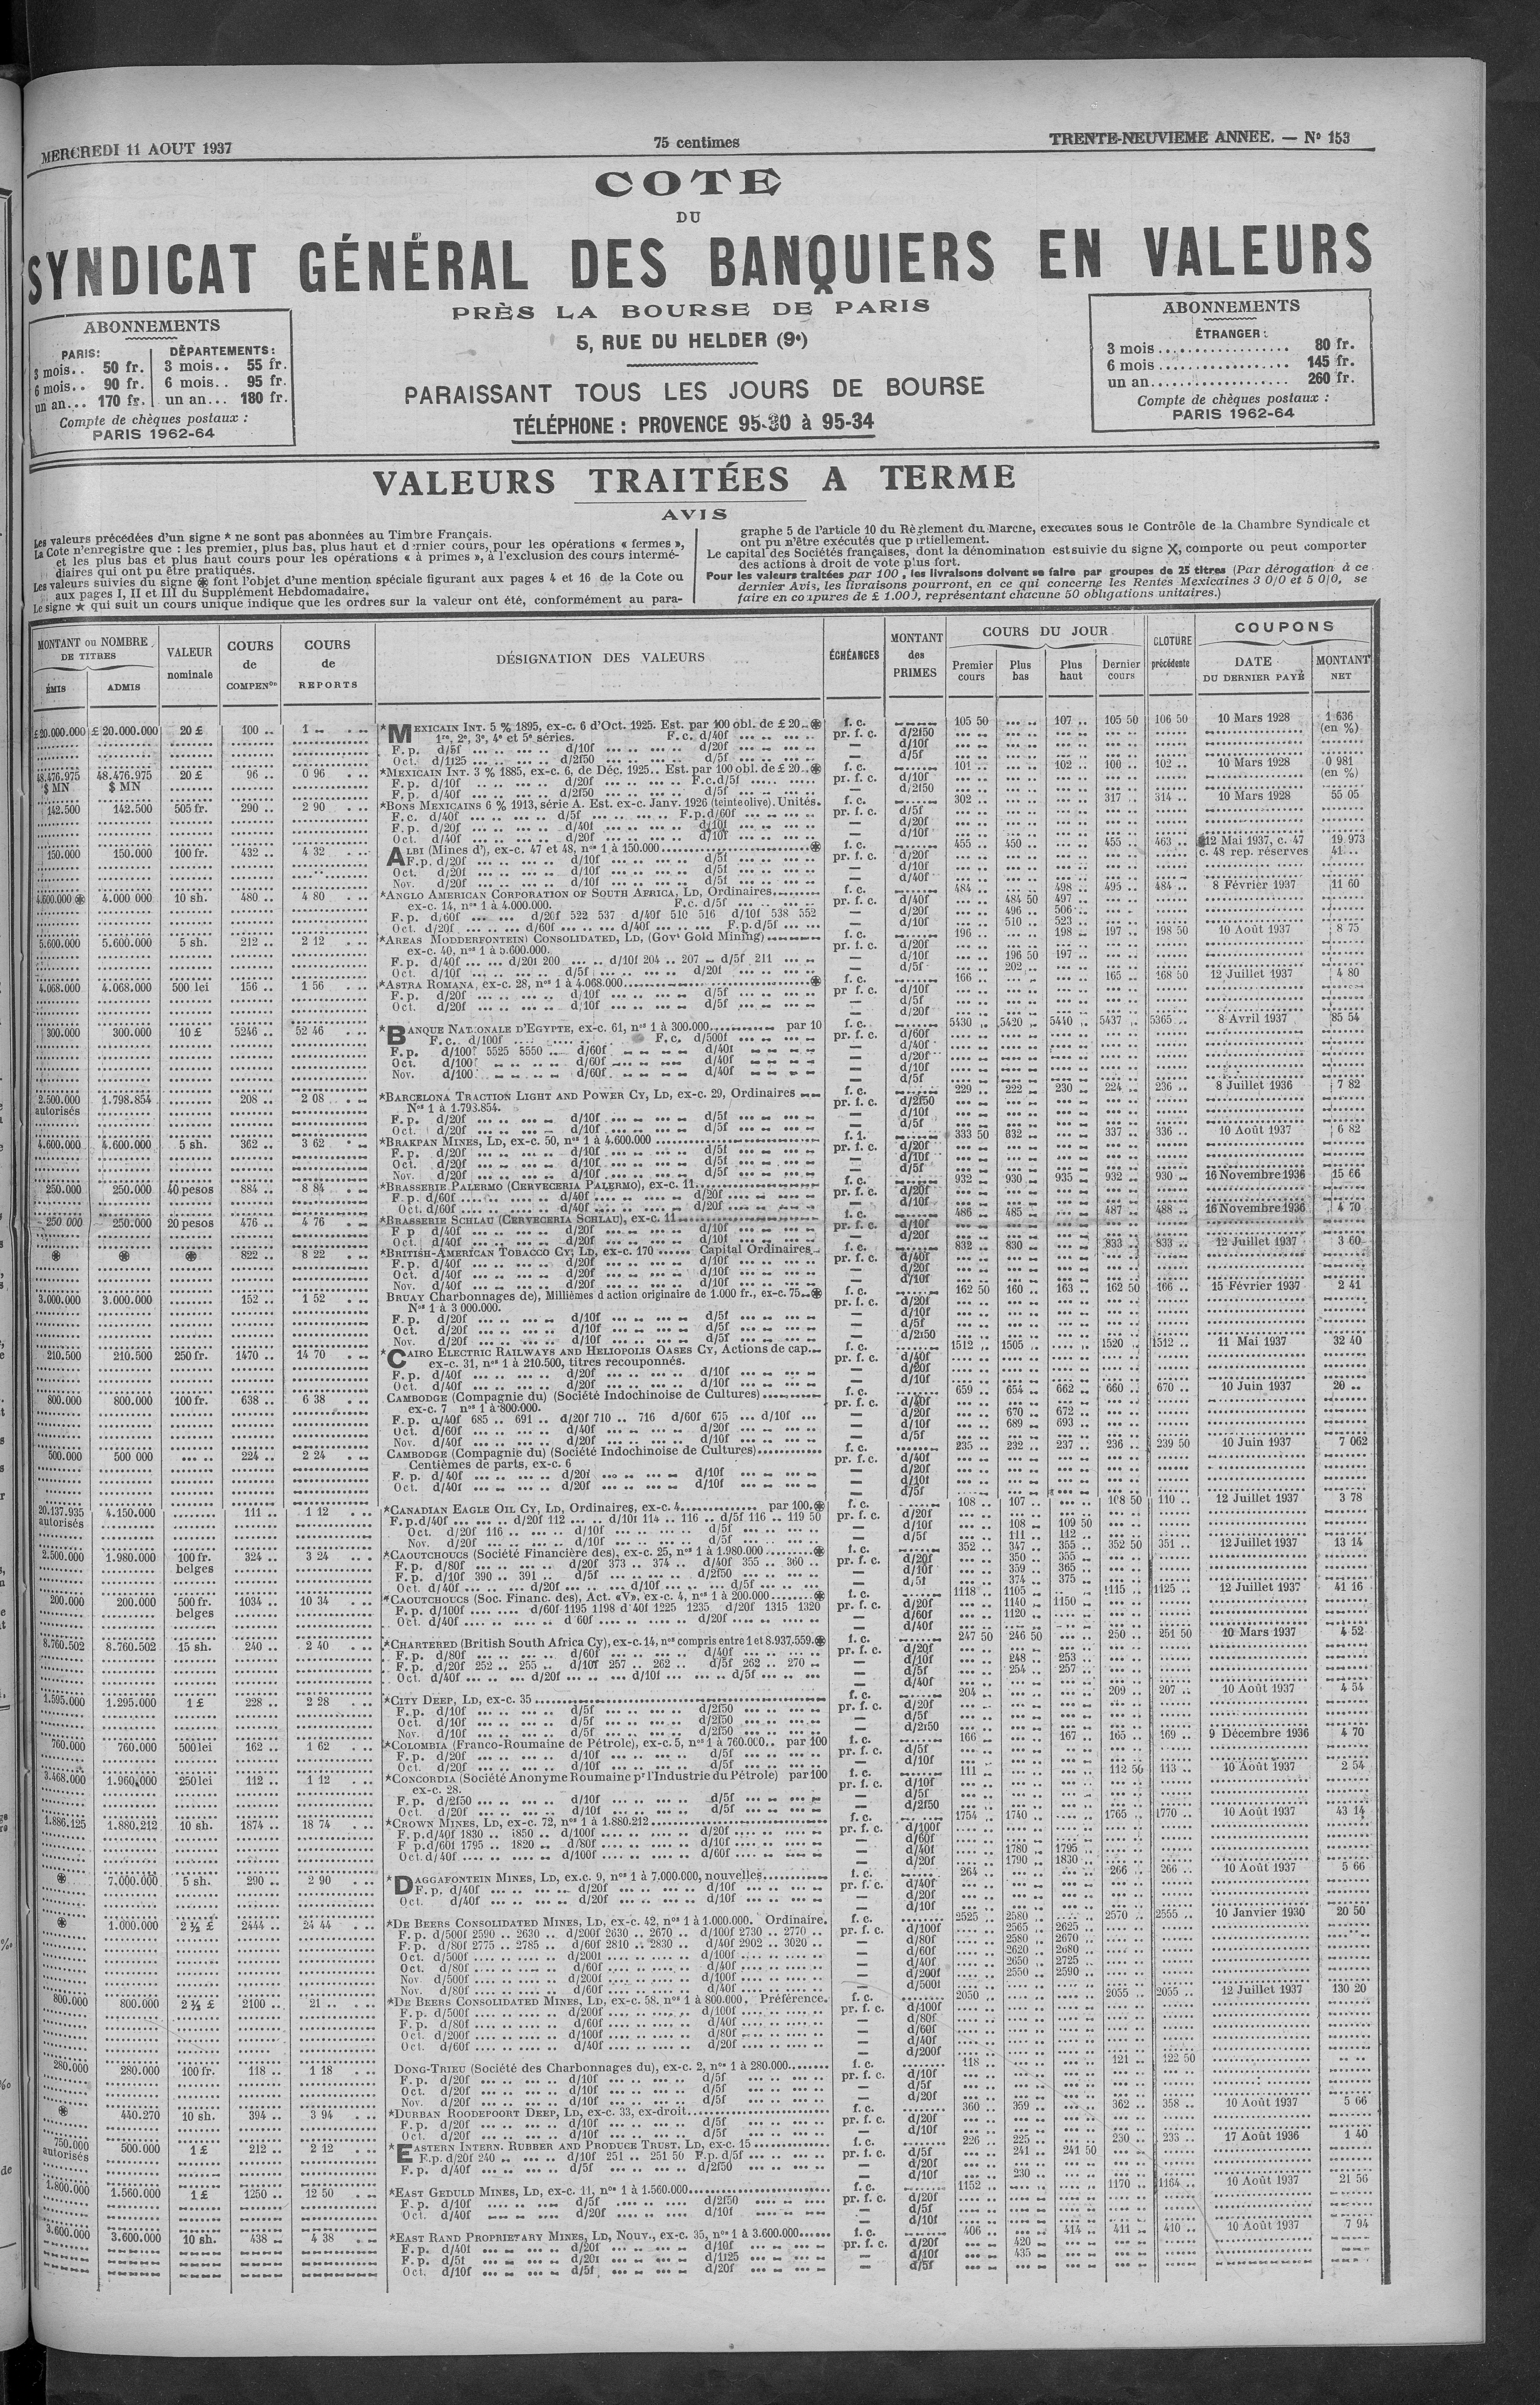 MERCREDI 11 AOUT 1937
75 centimes
TRENTE-NEUVIEME ANNEE. — N° 153
COTE
DU
SYNDICAT GÉNÉRAL DES BANQUIERS EN VALEURS
PRÈS LA BOURSE DE PARIS
5, RUE DU HELDER (9e)
PARAISSANT TOUS LES JOURS DE BOURSE
TÉLÉPHONE : PROVENCE 95-30 à 95-34
ABONNEMENTS
PARIS: DÉPARTEMENTS:
3 mois.. 50 fr. 3 mois.. 55 fr.
6 mois.. 90 fr. 6 mois.. 95 fr.
un an... 170 fr. un an... 180 fr.
Compte de chèques postaux :
PARIS 1962-64
ABONNEMENTS
ÉTRANGER :
3 mois ................ 80 fr.
6 mois ................ 145 fr.
un an.................. 260 fr.
Compte de chèques postaux :
PARIS 1962-64
VALEURS TRAITÉES A TERME
AVIS
Les valeurs précédées d'un signe * ne sont pas abonnées au Timbre Français.
La Cote n'enregistre que : les premier, plus bas, plus haut et dernier cours, pour les opérations « fermes »,
et les plus bas et plus haut cours pour les opérations « à primes », à l'exclusion des cours intermé-
diaires qui ont pu être pratiqués.
Les valeurs suivies du signe ⊛ font l'objet d'une mention spéciale figurant aux pages 4 et 16 de la Cote ou
aux pages I, II et III du Supplément Hebdomadaire.
Le signe ★ qui suit un cours unique indique que les ordres sur la valeur ont été, conformément au para-
graphe 5 de l'article 10 du Règlement du Marché, exécutés sous le Contrôle de la Chambre Syndicale et
ont pu n'être exécutés que partiellement.
Le capital des Sociétés françaises, dont la dénomination est suivie du signe X, comporte ou peut comporter
des actions à droit de vote plus fort.
Pour les valeurs traitées par 100, les livraisons doivent se faire par groupes de 25 titres (Par dérogation à ce
dernier Avis, les livraisons pourront, en ce qui concerne les Rentes Mexicaines 3 0/0 et 5 0/0, se
faire en coupures de £ 1.000, représentant chacune 50 obligations unitaires.)
MONTANT ou NOMBRE DE TITRES
ÉMIS ADMIS
VALEUR nominale
COURS de COMPENon
COURS de REPORTS
DÉSIGNATION DES VALEURS
ÉCHÉANCES
MONTANT des PRIMES
COURS DU JOUR
Premier cours Plus bas Plus haut Dernier cours
CLOTURE précédente
COUPONS
DATE DU DERNIER PAYÉ
MONTANT NET
£20.000.000 £ 20.000.000 20 £ 100 .. 1 .. *MEXICAIN INT. 5 % 1895, ex-c. 6 d'Oct. 1925. Est. par 100 obl. de £ 20..⊛ f. c. 105 50 107 .. 105 50 106 50 10 Mars 1928 1 636 (en %)
1re, 2e, 3e, 4e et 5e séries. F.c. d/40f pr. f. c. d/2f50
F.p. d/5f d/10f d/20f — d/10f
Oct. d/1f25 d/2f50 d/5f — d/5f
48.476.975 $ MN 48.476.975 $ MN 20 £ 96 .. 0 96 *MEXICAIN INT. 3 % 1885, ex-c. 6, de Déc. 1925.. Est. par 100 obl. de £ 20..⊛ f. c. 101 .. 102 .. 100 .. 102 .. 10 Mars 1928 0 981 (en %)
F.p. d/10f d/20f F.c.d/5f pr. f. c. d/10f
F.p. d/40f d/2f50 d/5f — d/2f50
142.500 142.500 505 fr. 290 .. 2 90 *BONS MEXICAINS 6 % 1913, série A. Est. ex-c. Janv. 1926 (teinte olive). Unités. f. c. 302 .. 317 .. 314 .. 10 Mars 1928 55 05
F.c. d/40f d/5f F.p.d/60f pr. f. c. d/5f
F.p. d/20f d/40f d/10f — d/20f
Oct. d/40f d/20f d/10f — d/10f
150.000 150.000 100 fr. 432 .. 4 32 ALBI (Mines d'), ex-c. 47 et 48, nos 1 à 150.000 ⊛ f. c. 455 .. 450 .. 455 .. 463 .. 12 Mai 1937, c. 47 19 973
F.p. d/20f d/10f d/5f pr. f. c. d/20f c. 48 rep. réserves 41 ..
Oct. d/20f d/10f d/5f — d/10f
Nov. d/20f d/10f d/5f — d/40f
4.600.000 ⊛ 4.000 000 10 sh. 480 .. 4 80 *ANGLO AMERICAN CORPORATION OF SOUTH AFRICA, LD, Ordinaires f. c. 484 .. 498 .. 495 .. 484 .. 8 Février 1937 11 60
ex-c. 14, nos 1 à 4.000.000. F.c. d/5f pr. f. c. d/40f 484 50 497 ..
F.p. d/60f d/20f 522 537 d/40f 510 516 d/10f 538 552 — d/20f 496 .. 506 ..
Oct. d/20f d/60f d/40f F.p.d/5f — d/10f 510 .. 523 ..
5.600.000 5.600.000 5 sh. 212 .. 2 12 *AREAS MODDERFONTEIN) CONSOLIDATED, LD, (Govt Gold Mining) f. c. 196 .. 198 .. 197 .. 198 50 10 Août 1937 8 75
ex-c. 40, nos 1 à 5.600.000. pr. f. c. d/20f
F.p. d/40f d/20f 200 d/10f 204 .. 207 .. d/5f 211 — d/10f 196 50 197 ..
Oct. d/10f d/5f d/20f — d/5f 202 ..
4.068.000 4.068.000 500 lei 156 .. 1 56 *ASTRA ROMANA, ex-c. 28, nos 1 à 4.068.000 ⊛ f. c. 166 .. 165 .. 168 50 12 Juillet 1937 4 80
F.p. d/20f d/10f d/5f pr f. c. d/10f
Oct. d/20f d/10f d/5f — d/5f
— d/20f
300.000 300.000 10 £ 5246 .. 52 46 *BANQUE NATIONALE D'EGYPTE, ex-c. 61, nos 1 à 300.000 par 10 f. c. 5430 .. 5420 .. 5440 .. 5437 .. 5365 .. 8 Avril 1937 85 54
F.c. d/100f F.c. d/500f pr. f. c. d/60f
F.p. d/100f 5525 5550 .. d/60f d/40f — d/40f
Oct. d/100f d/60f d/40f — d/20f
Nov. d/100 d/60f d/40f — d/10f
— d/5f
2.500.000 autorisés 1.798.854 208 .. 2 08 *BARCELONA TRACTION LIGHT AND POWER CY, LD, ex-c. 29, Ordinaires f. c. 229 .. 222 .. 230 .. 224 .. 236 .. 8 Juillet 1936 7 82
Nos 1 à 1.793.854. pr. f. c. d/2f50
F.p. d/20f d/10f d/5f — d/10f
Oct. d/20f d/10f d/5f — d/5f
4.600.000 4.600.000 5 sh. 362 .. 3 62 *BRAKPAN MINES, LD, ex-c. 50, nos 1 à 4.600.000 f. c. 333 50 332 .. 337 .. 336 .. 10 Août 1937 6 82
F.p. d/20f d/10f d/5f pr. f. c. d/20f
Oct. d/20f d/10f d/5f — d/10f
Nov. d/20f d/10f d/5f — d/5f
250.000 250.000 40 pesos 884 .. 8 84 *BRASSERIE PALERMO (CERVECERIA PALERMO), ex-c. 11 f. c. 932 .. 930 .. 935 .. 932 .. 930 .. 16 Novembre 1936 15 66
F.p. d/60f d/40f d/20f pr. f. c. d/20f
Oct. d/60f d/40f d/20f — d/10f
250 000 250.000 20 pesos 476 .. 4 76 *BRASSERIE SCHLAU (CERVECERIA SCHLAU), ex-c. 11 f. c. 486 .. 485 .. 487 .. 488 .. 16 Novembre 1936 4 70
F p d/40f d/20f d/10f pr. f. c. d/10f
Oct. d/40f d/20f d/10f — d/20f
⊛ ⊛ ⊛ 822 .. 8 22 *BRITISH-AMERICAN TOBACCO CY, LD, ex-c. 170 Capital Ordinaires f. c. 832 .. 830 .. 833 .. 833 .. 12 Juillet 1937 3 60
F.p. d/40f d/20f d/10f pr. f. c. d/40f
Oct. d/40f d/20f d/10f — d/20f
Nov. d/40f d/20f d/10f — d/10f
3.000.000 3.000.000 152 .. 1 52 BRUAY Charbonnages de), Millièmes d action originaire de 1.000 fr., ex-c. 75..⊛ f. c. 162 50 160 .. 163 .. 162 50 166 .. 15 Février 1937 2 41
Nos 1 à 3 000.000. pr. f. c. d/20f
F.p. d/20f d/10f d/5f — d/10f
Oct. d/20f d/10f d/5f — d/5f
Nov. d/20f d/10f d/5f — d/2f50
210.500 210.500 250 fr. 1470 .. 14 70 *CAIRO ELECTRIC RAILWAYS AND HELIOPOLIS OASES CY, Actions de cap. f. c. 1512 .. 1505 .. 1520 .. 1512 .. 11 Mai 1937 32 40
ex-c. 31, nos 1 à 210.500, titres recouponnés. pr. f. c. d/40f
F.p. d/40f d/20f d/10f — d/20f
Oct. d/40f d/20f d/10f — d/10f
800.000 800.000 100 fr. 638 .. 6 38 CAMBODGE (Compagnie du) (Société Indochinoise de Cultures) f. c. 659 .. 654 .. 662 .. 660 .. 670 .. 10 Juin 1937 20 ..
ex-c. 7 nos 1 à 800.000. pr. f. c. d/40f
F.p. d/40f 685 .. 691 .. d/20f 710 .. 716 d/60f 675 d/10f — d/20f 670 .. 672 ..
Oct. d/60f d/40f d/20f — d/10f 689 .. 693 ..
Nov. d/40f d/20f d/10f — d/5f
500.000 500 000 224 .. 2 24 CAMBODGE (Compagnie du) (Société Indochinoise de Cultures) f. c. 235 .. 232 .. 237 .. 236 .. 239 50 10 Juin 1937 7 062
Centièmes de parts, ex-c. 6 pr. f. c. d/40f
F.p. d/40f d/20f d/10f — d/20f
Oct. d/40f d/20f d/10f — d/10f
— d/5f
20.137.935 autorisés 4.150.000 111 .. 1 12 *CANADIAN EAGLE OIL CY, LD, Ordinaires, ex-c. 4 par 100.⊛ f. c. 108 .. 107 .. 108 50 110 .. 12 Juillet 1937 3 78
F.p.d/40f d/20f 112 d/10f 114 .. 116 .. d/5f 116 .. 119 50 pr. f. c. d/20f
Oct. d/20f 116 d/10f d/5f — d/10f 108 .. 109 50
Nov. d/20f d/10f d/5f — d/5f 111 .. 112 ..
2.500.000 1.980.000 100 fr. belges 324 .. 3 24 *CAOUTCHOUCS (Société Financière des), ex-c. 25, nos 1 à 1.980.000 ⊛ f. c. 352 .. 347 .. 355 .. 352 50 351 .. 12 Juillet 1937 13 14
F.p. d/80f d/20f 373 .. 374 .. d/40f 355 .. 360 .. pr. f. c. d/20f 350 .. 355 ..
F.p. d/10f 390 .. 391 .. d/5f d/2f50 — d/10f 359 .. 365 ..
Oct. d/40f d/20f d/10f d/5f — d/5f 374 .. 375 ..
200.000 200.000 500 fr. belges 1034 .. 10 34 *CAOUTCHOUCS (Soc. Financ. des), Act. «V», ex-c. 4, nos 1 à 200.000 ⊛ f. c. 1118 .. 1105 .. 1115 .. 1125 .. 12 Juillet 1937 41 16
F.p. d/100f d/60f 1195 1198 d'40f 1225 1235 d/20f 1315 1320 pr. f. c. d/20f 1140 .. 1150 ..
Oct. d/40f d 60f d/20f — d/60f 1120 ..
— d/40f
8.760.502 8.760.502 15 sh. 240 .. 2 40 *CHARTERED (British South Africa Cy), ex-c. 14, nos compris entre 1 et 8.937.559.⊛ f. c. 247 50 246 50 250 .. 251 50 10 Mars 1937 4 52
F.p. d/80f d/60f d/40f pr. f. c. d/20f
F.p. d/20f 252 .. 255 .. d/10f 257 .. 262 .. d/5f 262 .. 270 .. — d/10f 248 .. 253 ..
Oct. d/40f d/20f d/10f d/5f — d/5f 254 .. 257 ..
— d/40f
1.595.000 1.295.000 1 £ 228 .. 2 28 *CITY DEEP, LD, ex-c. 35 f. c. 204 .. 209 .. 207 .. 10 Août 1937 4 54
F.p. d/10f d/5f d/2f50 pr. f. c. d/20f
Oct. d/10f d/5f d/2f50 — d/5f
Nov. d/10f d/5f d/2f50 — d/2f50
760.000 760.000 500 lei 162 .. 1 62 *COLOMBIA (Franco-Roumaine de Pétrole), ex-c. 5, nos 1 à 760.000.. par 100 f. c. 166 .. 167 .. 165 .. 169 .. 9 Décembre 1936 4 70
F.p. d/20f d/10f d/5f pr. f. c. d/5f
Oct. d/20f d/10f d/5f — d/10f
3.468.000 1.960.000 250 lei 112 .. 1 12 *CONCORDIA (Société Anonyme Roumaine pr l'Industrie du Pétrole) par 100 f. c. 111 .. 112 50 113 .. 10 Août 1937 2 54
ex-c. 28. pr. f. c. d/10f
F.p. d/2f50 d/10f d/5f — d/5f
Oct. d/20f d/10f d/5f — d/2f50
1.886.125 1.880.212 10 sh. 1874 .. 18 74 *CROWN MINES, LD, ex-c. 72, nos 1 à 1.880.212 f. c. 1754 .. 1740 .. 1765 .. 1770 .. 10 Août 1937 43 14
F.p.d/40f 1830 .. 1850 .. d/100f d/20f pr. f. c. d/100f
F p.d/60f 1795 .. 1820 .. d/80f d/10f — d/60f
Oct.d/40f d/100f d/60f — d/40f 1780 .. 1795 ..
— d/20f 1790 .. 1830 ..
⊛ 7.000.000 5 sh. 290 .. 2 90 *DAGGAFONTEIN MINES, LD, ex.c. 9, nos 1 à 7.000.000, nouvelles f. c. 264 .. 266 .. 266 .. 10 Août 1937 5 66
F.p. d/40f d/20f d/10f pr. f. c. d/40f
Oct. d/40f d/20f d/10f — d/20f
— d/10f
⊛ 1.000.000 2 ½ £ 2444 .. 24 44 *DE BEERS CONSOLIDATED MINES, LD, ex-c. 42, nos 1 à 1.000.000. Ordinaire. f. c. 2525 .. 2580 .. 2570 .. 2555 .. 10 Janvier 1930 20 50
F.p. d/500f 2590 .. 2630 .. d/200f 2630 .. 2670 .. d/100f 2730 .. 2770 .. pr. f. c. d/100f 2565 .. 2625 ..
F.p. d/80f 2775 .. 2785 .. d/60f 2810 .. 2830 .. d/40f 2902 .. 3020 .. — d/80f 2580 .. 2670 ..
Oct. d/500f d/200f d/100f — d/60f 2620 .. 2680 ..
Oct. d/80f d/60f d/40f — d/40f 2650 .. 2725 ..
Nov. d/500f d/200f d/100f — d/200f 2550 .. 2590 ..
Nov. d/80f d/60f d/40f — d/500f
800.000 800.000 2 ½ £ 2100 .. 21 .. *DE BEERS CONSOLIDATED MINES, LD, ex-c. 58, nos 1 à 800.000. Préférence. f. c. 2050 .. 2055 .. 2055 .. 12 Juillet 1937 130 20
F.p. d/500f d/200f d/100f pr. f. c. d/100f
F.p. d/80f d/60f d/40f — d/80f
Oct. d/200f d/100f d/80f — d/60f
Oct. d/60f d/40f d/20f — d/40f
— d/200f
280.000 280.000 100 fr. 118 .. 1 18 DONG-TRIEU (Société des Charbonnages du), ex-c. 2, nos 1 à 280.000 f. c. 118 .. 121 .. 122 50
F.p. d/20f d/10f d/5f pr. f. c. d/10f
Oct. d/20f d/10f d/5f — d/5f
Nov. d/20f d/10f d/5f — d/20f
⊛ 440.270 10 sh. 394 .. 3 94 *DURBAN ROODEPOORT DEEP, LD, ex-c. 33, ex-droit f. c. 360 .. 359 .. 362 .. 358 .. 10 Août 1937 5 66
F.p. d/20f d/10f d/5f pr. f. c. d/20f
Oct. d/20f d/10f d/5f — d/10f
750.000 autorisés 500.000 1 £ 212 .. 2 12 *EASTERN INTERN. RUBBER AND PRODUCE TRUST. LD, ex-c. 15 f. c. 226 .. 225 .. 230 .. 233 .. 17 Août 1936 1 40
F.p.d/20f 240 d/10f 251 .. 251 50 F.p. d/5f pr. f. c. d/5f 241 .. 241 50
F.p. d/40f d/5f d/2f50 — d/20f
— d/10f 230 ..
1.800.000 1.560.000 1 £ 1250 .. 12 50 *EAST GEDULD MINES, LD, ex-c. 11, nos 1 à 1.560.000 f. c. 1152 .. 1170 .. 1164 .. 10 Août 1937 21 56
F.p. d/10f d/5f d/2f50 pr. f. c. d/20f
Oct. d/40f d/20f d/10f — d/5f
— d/10f
3.600.000 3.600.000 10 sh. 438 .. 4 38 *EAST RAND PROPRIETARY MINES, LD, Nouv., ex-c. 35, nos 1 à 3.600.000 f. c. 406 .. 414 .. 411 .. 410 .. 10 Août 1937 7 94
F.p. d/40f d/20f d/10f pr. f. c. d/20f 420 ..
F.p. d/5f d/20f d/1f25 — d/10f 435 ..
Oct. d/10f d/5f d/20f — d/5f